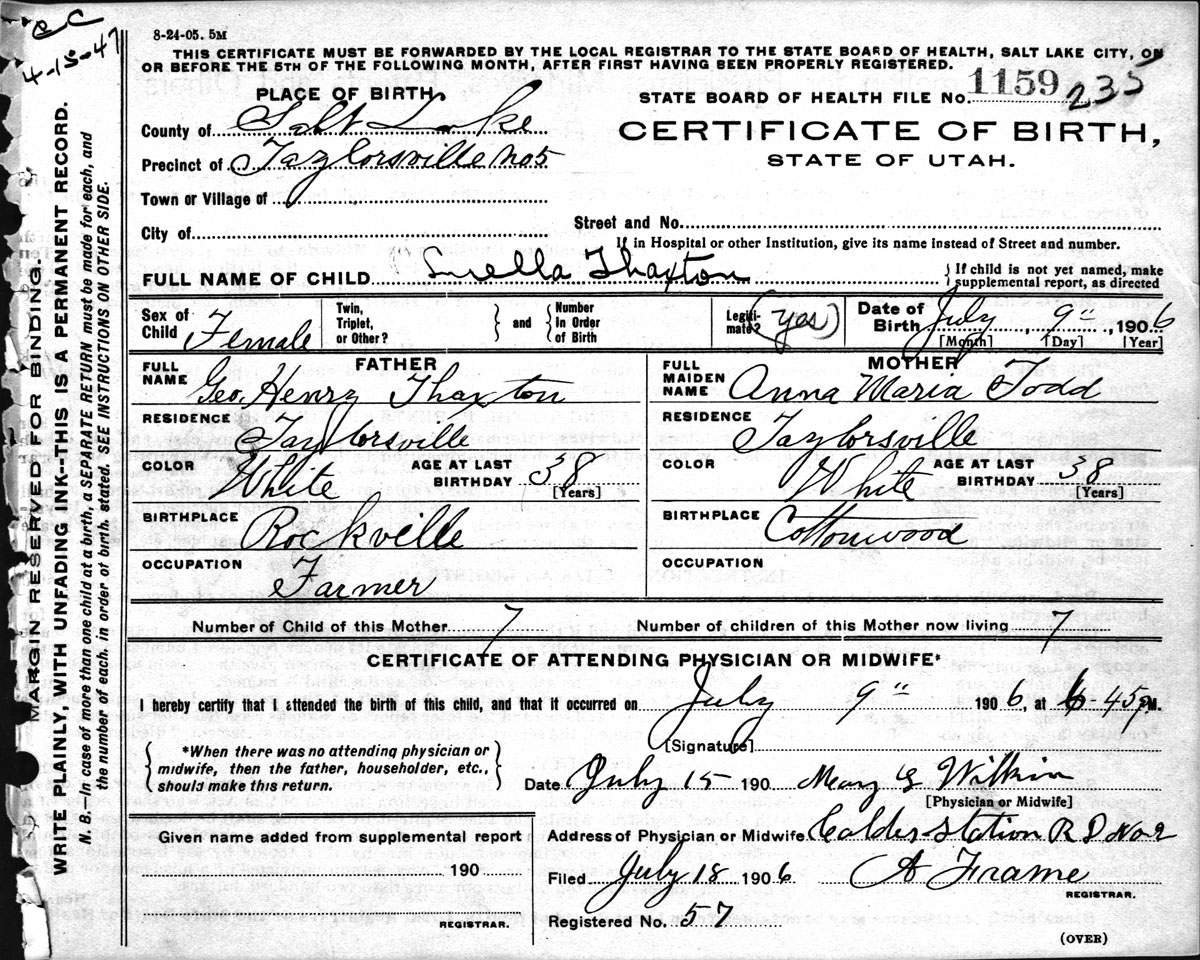 CC
4-15-47
8-24-05. 5M
THIS CERTIFICATE MUST BE FORWARDED BY THE LOCAL REGISTRAR TO THE STATE BOARD OF HEALTH, SALT LAKE CITY, ON
OR BEFORE THE 5TH OF THE FOLLOWING MONTH, AFTER FIRST HAVING BEEN PROPERLY REGISTERED.
PLACE OF BIRTH.
STATE BOARD OF HEALTH FILE No. 1159 235
County of Salt Lake
CERTIFICATE OF BIRTH,
Precinct of Taylorsville No 5
STATE OF UTAH.
Town or Village of
City of
Street and No.
If in Hospital or other Institution, give its name instead of Street and number.
FULL NAME OF CHILD Luella Thaxton
{ If child is not yet named, make
supplemental report, as directed
Sex of Child Female
Twin, Triplet, or Other?
and
Number In Order of Birth
Legiti-mate? (yes)
Date of Birth July 9", 1906
[Month] [Day] [Year]
FATHER
MOTHER
FULL NAME Geo. Henry Thaxton
FULL MAIDEN NAME Anna Maria Todd
RESIDENCE Taylorsville
RESIDENCE Taylorsville
COLOR White AGE AT LAST BIRTHDAY 38 [Years]
COLOR White AGE AT LAST BIRTHDAY 38 [Years]
BIRTHPLACE Rockville
BIRTHPLACE Cottonwood
OCCUPATION Farmer
OCCUPATION
Number of Child of this Mother 7
Number of children of this Mother now living 7
CERTIFICATE OF ATTENDING PHYSICIAN OR MIDWIFE*
I hereby certify that I attended the birth of this child, and that it occurred on July 9" 1906, at 6-45 P.M.
*When there was no attending physician or
midwife, then the father, householder, etc.,
should make this return.
[Signature]
Date July 15 190 Mary E Wilkin
[Physician or Midwife]
Given name added from supplemental report
190
REGISTRAR.
Address of Physician or Midwife Calder Station R D No 2
Filed July 18 1906 A Frame
REGISTRAR.
Registered No. 57
(OVER)
MARGIN RESERVED FOR BINDING.
WRITE PLAINLY, WITH UNFADING INK--THIS IS A PERMANENT RECORD.
N. B.--In case of more than one child at a birth, a SEPARATE RETURN must be made for each, and
the number of each, in order of birth, stated. SEE INSTRUCTIONS ON OTHER SIDE.